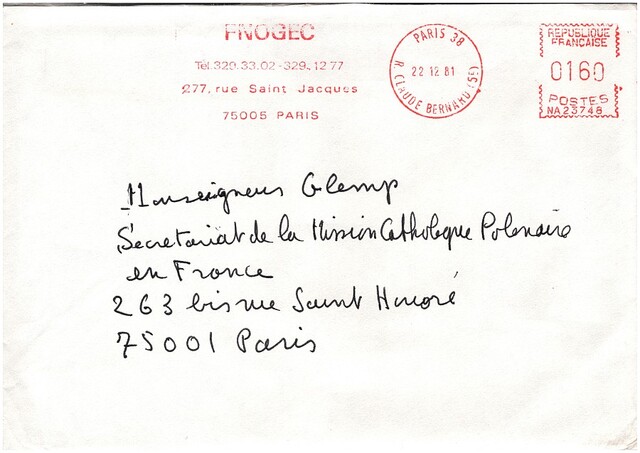 FNOGEC
Tél. 320.33.02 - 329.12.77
277, rue Saint Jacques
75005 PARIS
PARIS 38
22 12 81
R. CLAUDE BERNARD (5E)
REPUBLIQUE
FRANCAISE
0160
POSTES
NA 23748
Monseigneur Glemp
Secretariat de la Mission Catholique Polonaise
en France
263 bis rue Saint Honoré
75001 Paris